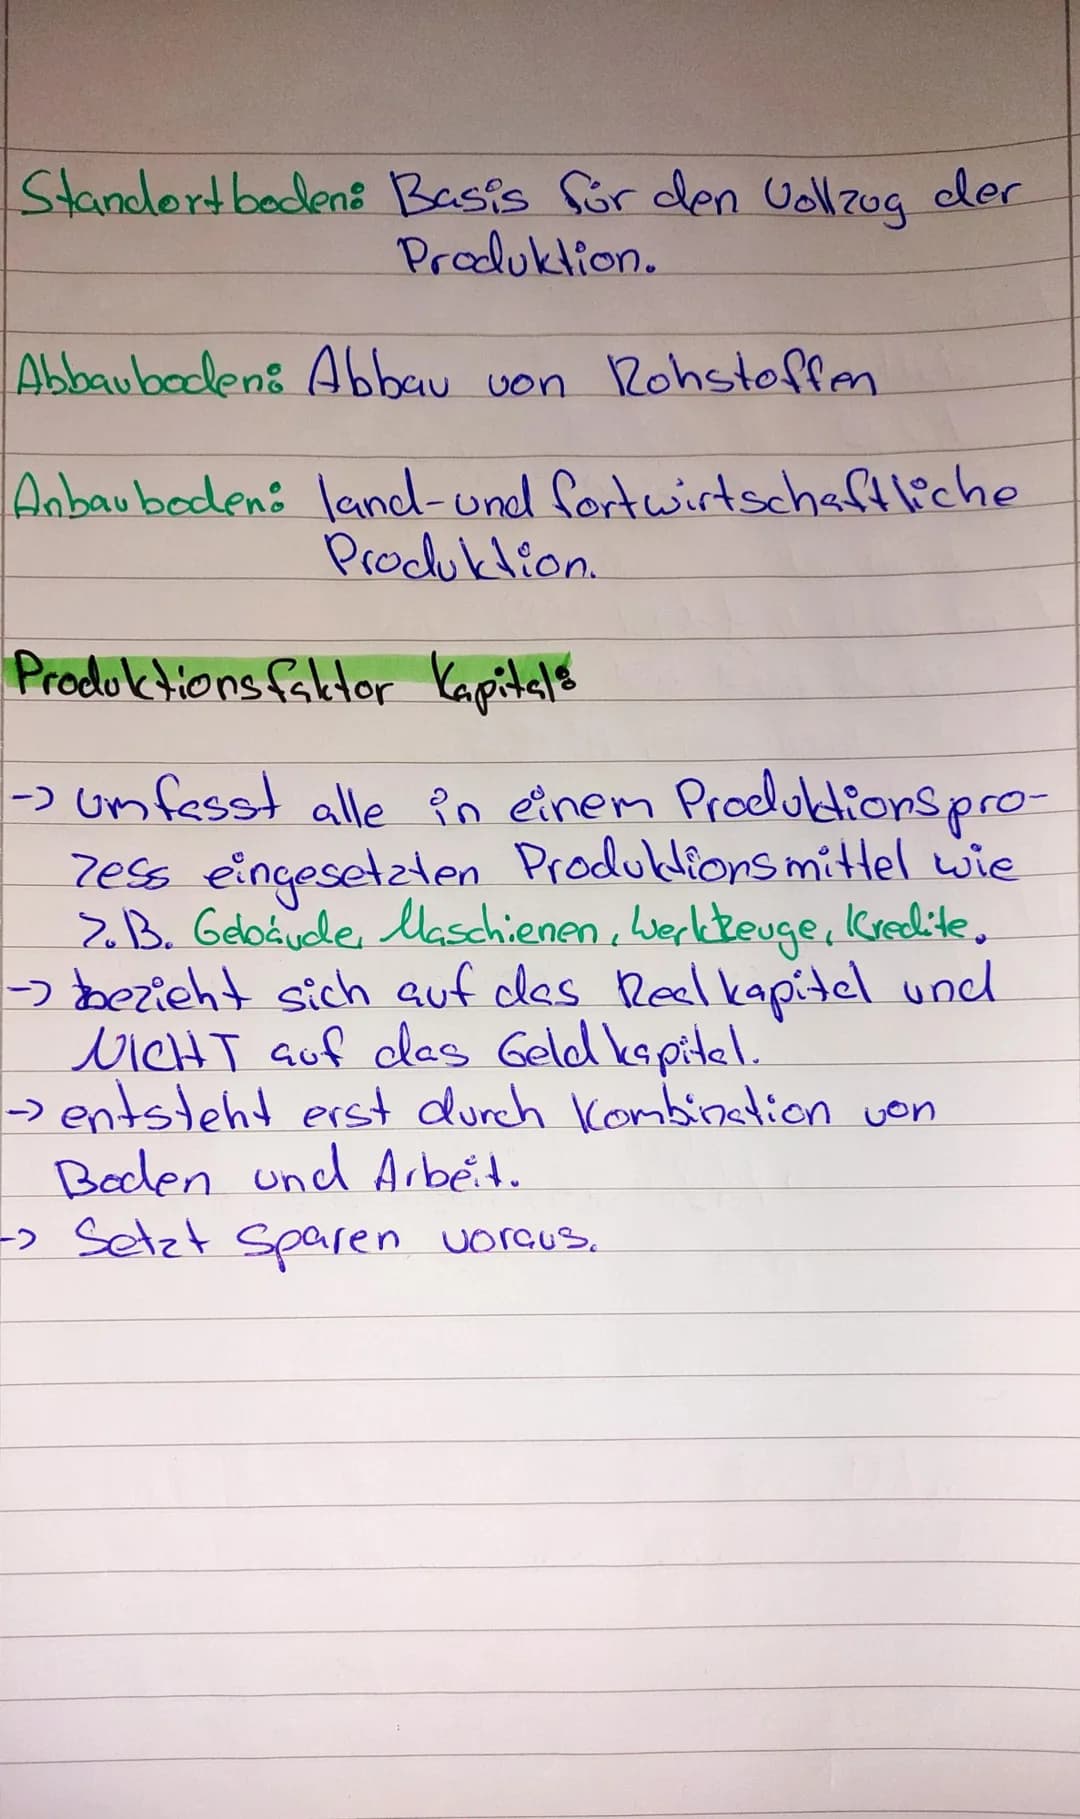 Standortboden: Basis für den Vollzug der
Produktion.
Abbauboden: Abbau von Rohstoffen
Anbauboden: land-und fortwirtschaftliche
Produktion.
Produktionsfaktor Kapital:
-> umfasst alle in einem Produktionspro-
zess eingesetzten Produktionsmittel wie
z.B. Gebäude, Maschienen, Werkzeuge, Kredite.
-> bezieht sich auf das Realkapital und
NICHT auf das Geldkapital.
-> entsteht erst durch Kombination von
Boden und Arbeit.
-> Setzt Sparen voraus.